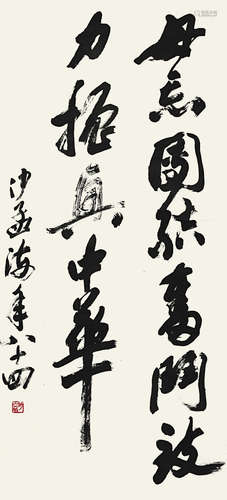 毋忘團结奮鬥致
力振興中華
沙孟海年八十四